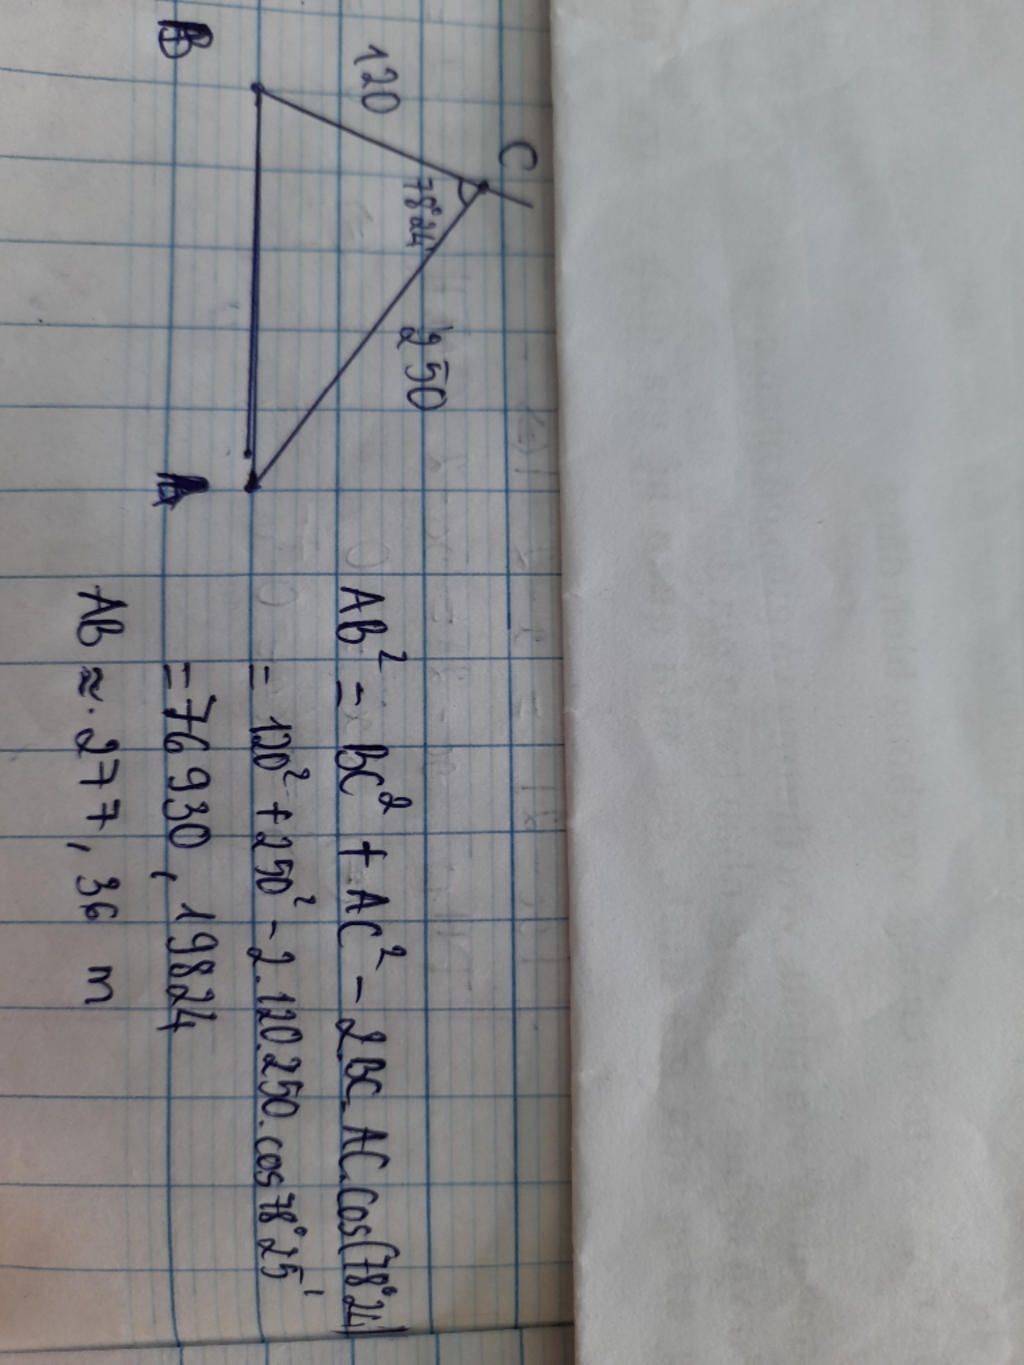 C
120
78°24'
250
B
A
AB² = BC² + AC² - 2.BC.AC.Cos(78°24')
= 120² + 250² - 2.120.250.cos78°25'
= 76930,19824
AB ≈ 277,36 m